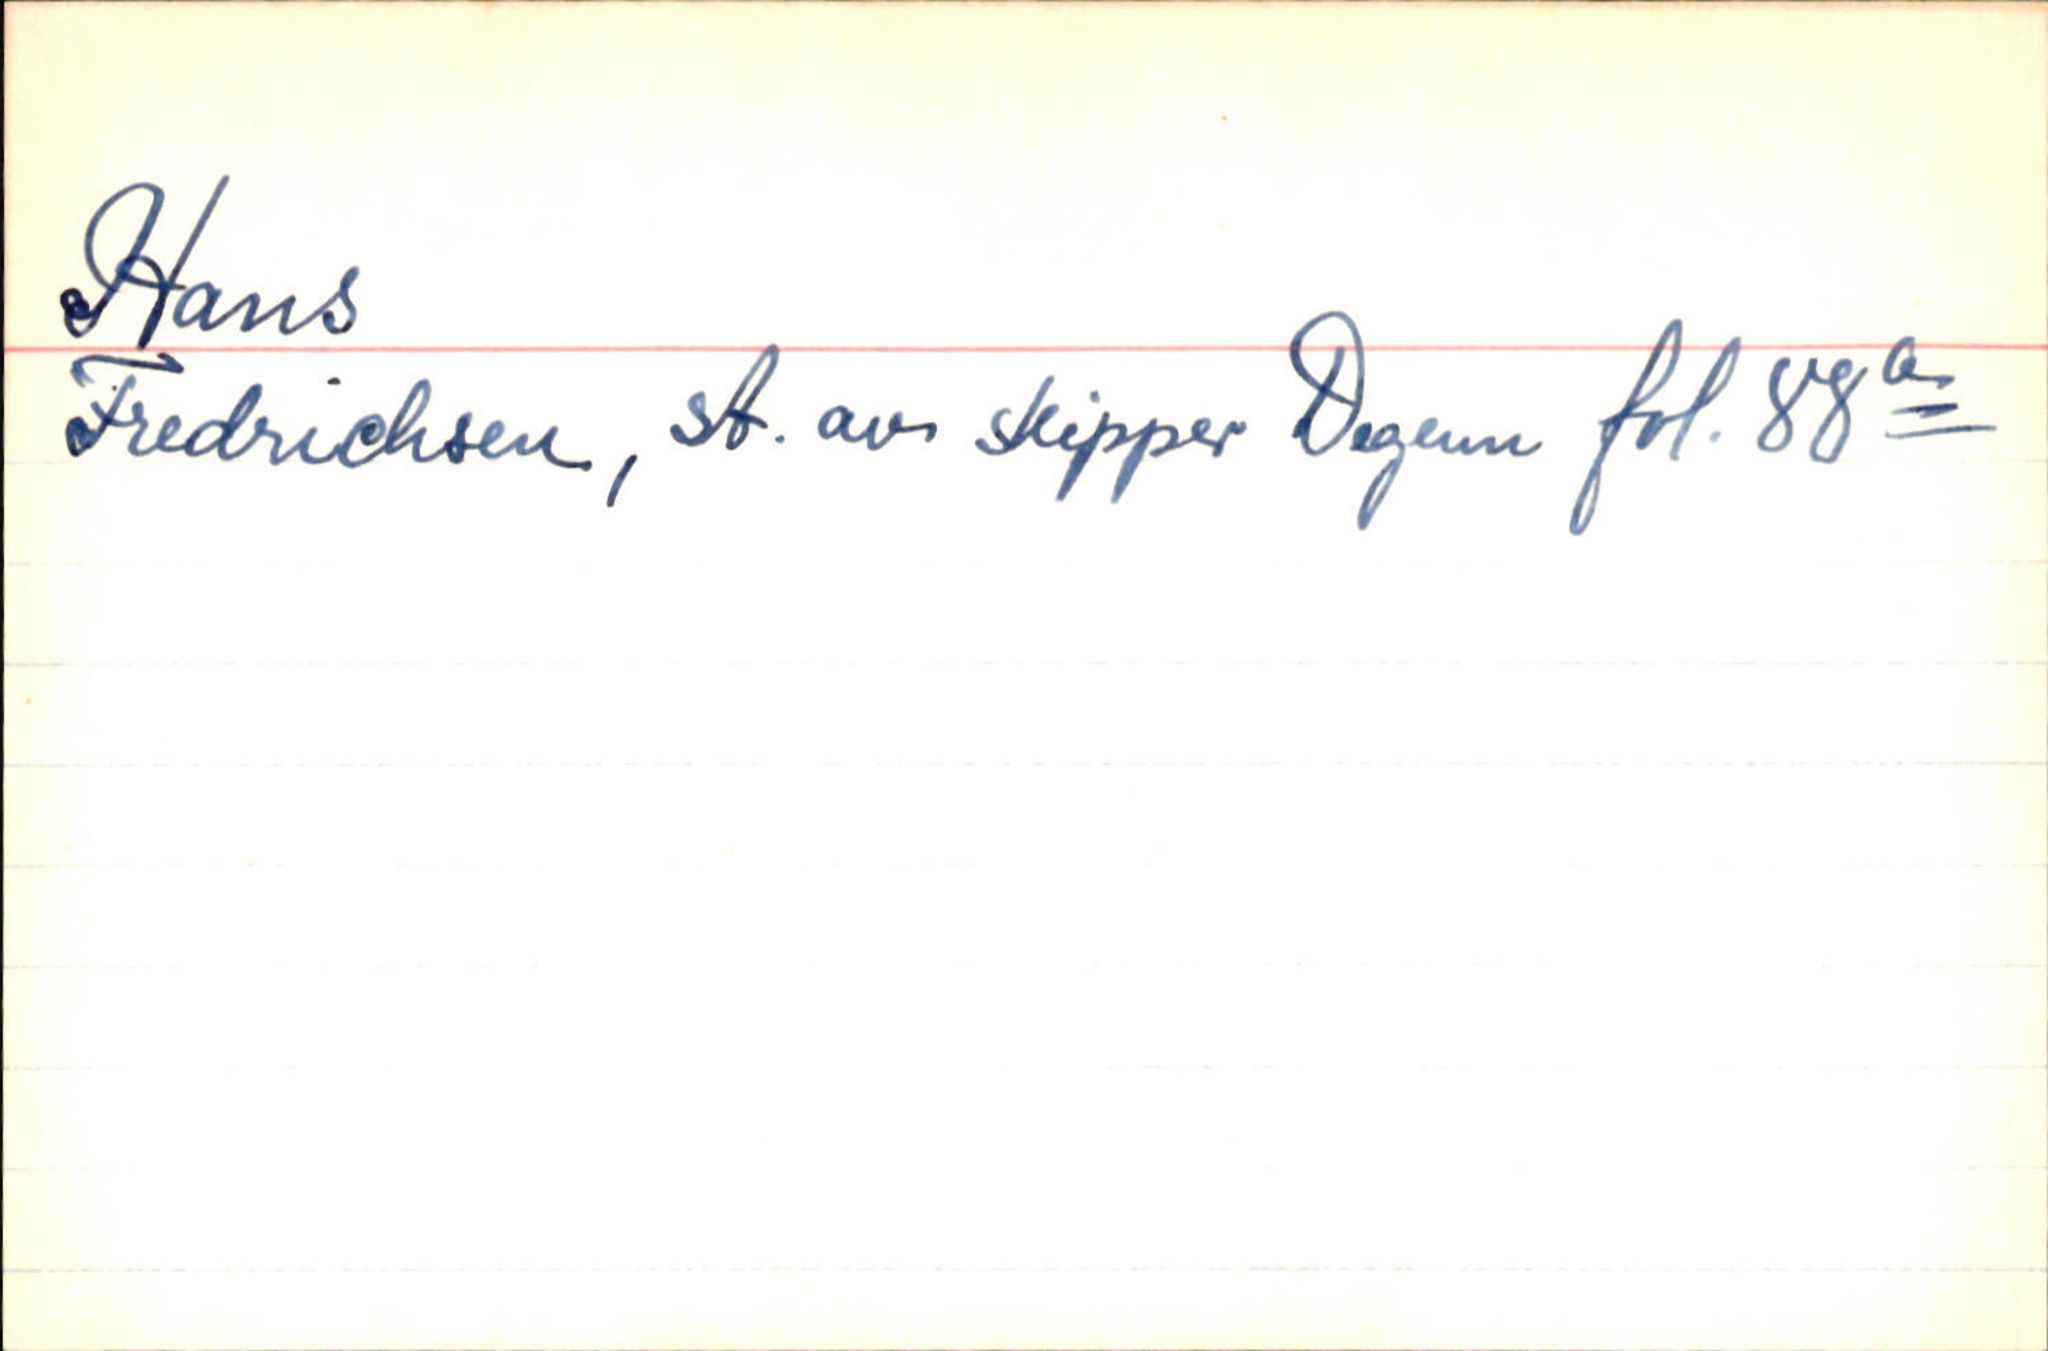 Hans
Fredrichsen, st. av skipper Degenn fol. 88a